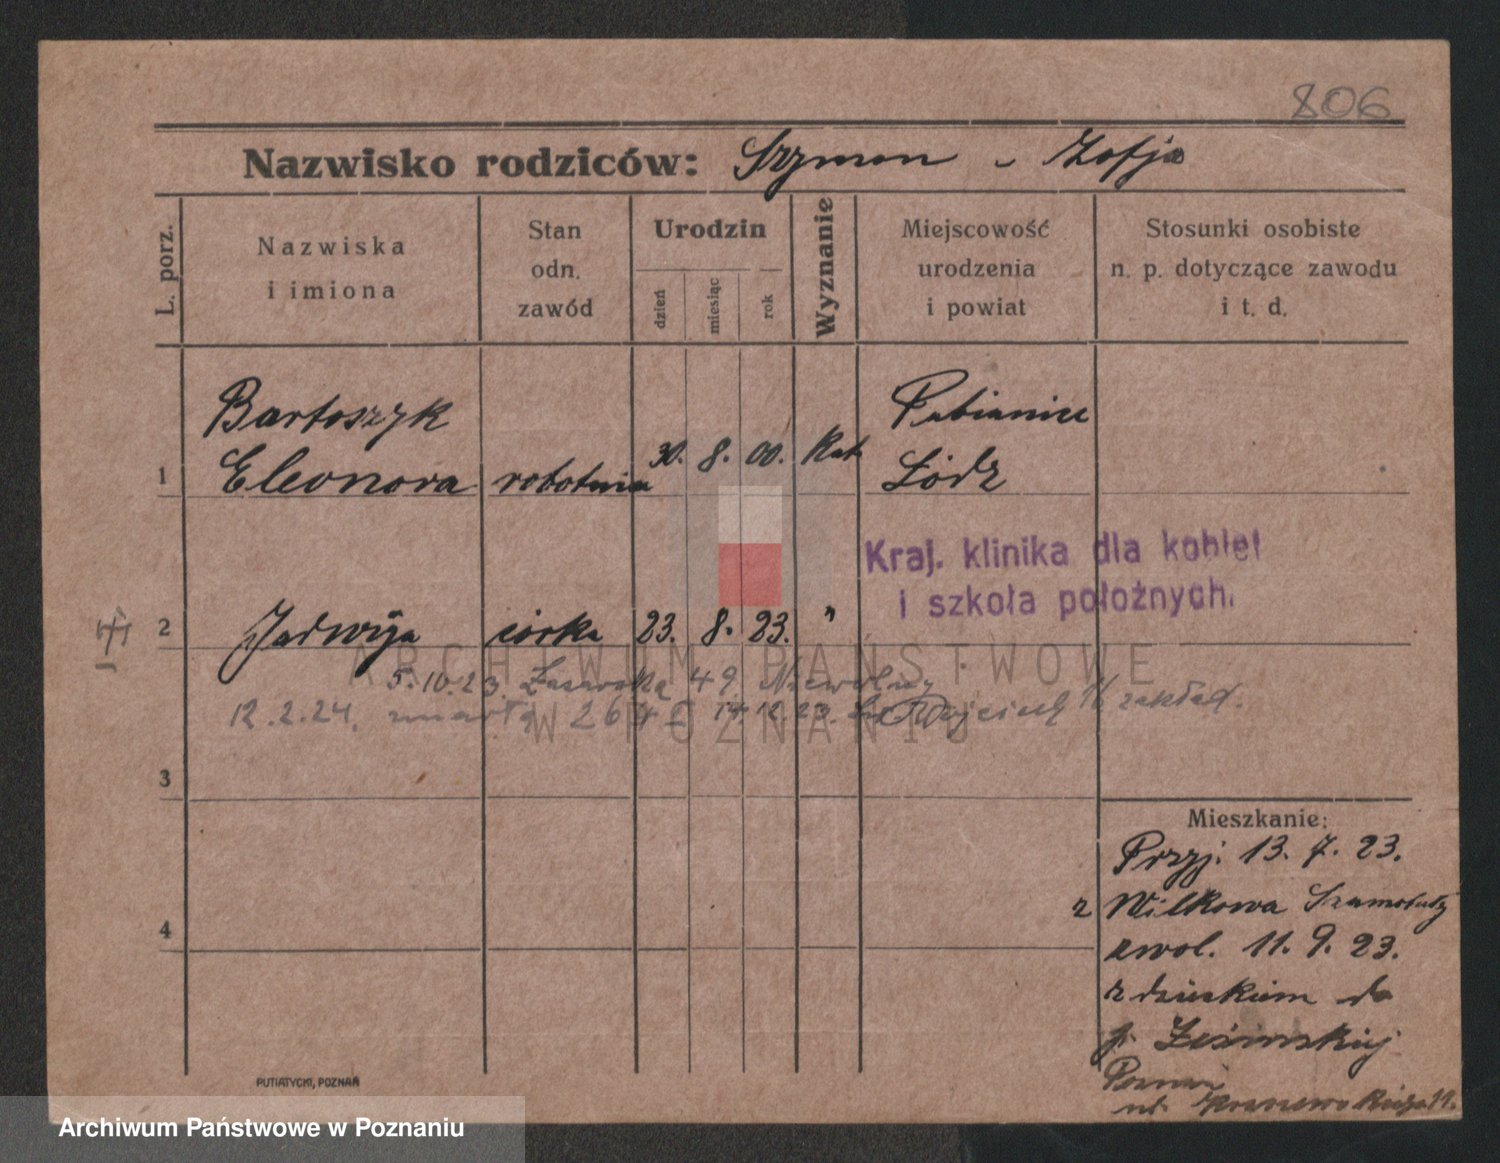 806
Nazwisko rodziców: Szymon - Zofja
L. porz.
Nazwiska
i imiona
Stan
odn.
zawód
Urodzin
dzień
miesiąc
rok
Wyznanie
Miejscowość
urodzenia
i powiat
Stosunki osobiste
n. p. dotyczące zawodu
i t. d.
Bartoszyk
Pabianice
1 Eleonora robotnica 30. 8. 00. Kat. Łódz
Kraj. klinika dla kobiet
i szkoła położnych.
2 Jadwiga córka 23. 8. 23. "
ARCHIWUM PAŃSTWOWE
W POZNANIU
5.10.23. 49
12.2.24. zmarła 12.23. Wojciech zakład.
3
Mieszkanie:
Przyj. 13. 7. 23.
z Wilkowa Szamotuły
4
zwol. 11. 9. 23.
z dzieckiem do
p.
Poznań
ul. 11.
PUTIATYCKI, POZNAŃ
Archiwum Państwowe w Poznaniu